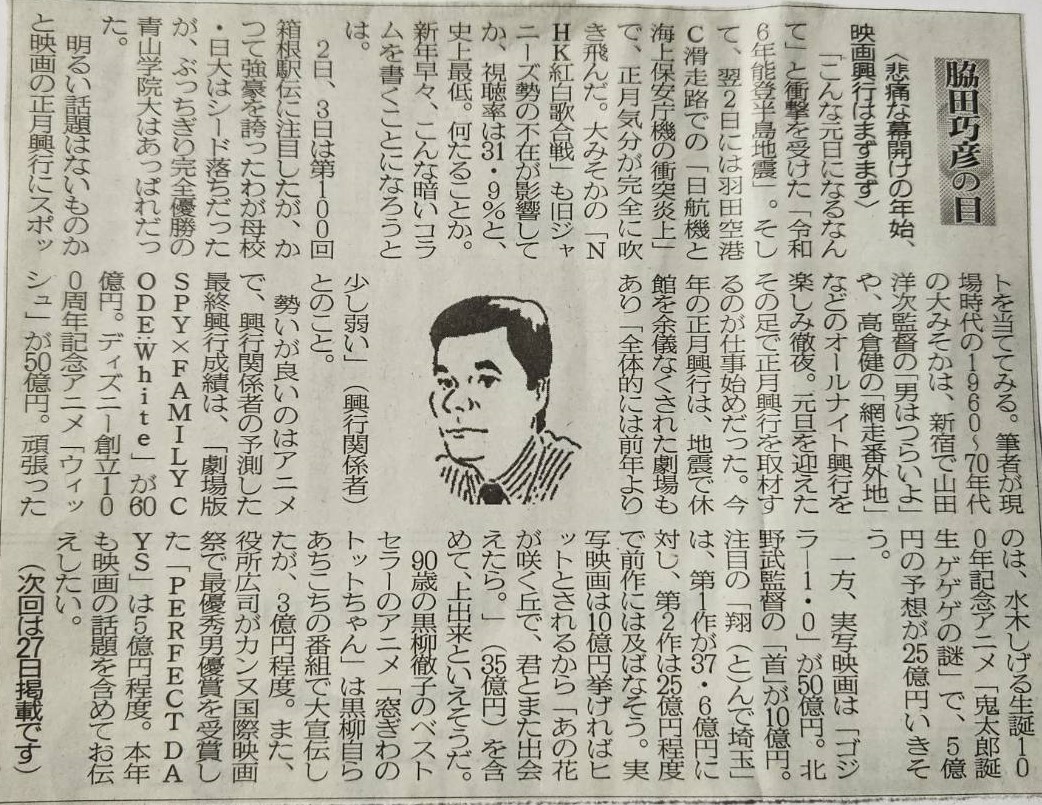 脇田巧彦の目
〈悲痛な幕開けの年始、
映画興行はまずまず〉
「こんな元日になるなん
て」と衝撃を受けた「令和
6年能登半島地震」。そし
て、翌2日には羽田空港
C滑走路での「日航機と
海上保安庁機の衝突炎上」
で、正月気分が完全に吹
き飛んだ。大みそかの「N
HK紅白歌合戦」も旧ジャ
ニーズ勢の不在が影響して
か、視聴率は31・9%と、
史上最低。何たることか。
新年早々、こんな暗いコラ
ムを書くことになろうと
は。
2日、3日は第100回
箱根駅伝に注目したが、か
つて強豪を誇ったわが母校
・日大はシード落ちだった
が、ぶっちぎり完全優勝の
青山学院大はあっぱれだっ
た。
明るい話題はないものか
と映画の正月興行にスポッ
トを当ててみる。筆者が現
場時代の1960〜70年代
の大みそかは、新宿で山田
洋次監督の「男はつらいよ」
や、高倉健の「網走番外地」
などのオールナイト興行を
楽しみ徹夜。元旦を迎えた
その足で正月興行を取材す
るのが仕事始めだった。今
年の正月興行は、地震で休
館を余儀なくされた劇場も
あり「全体的には前年より
少し弱い」(興行関係者)
とのこと。
勢いが良いのはアニメ
で、興行関係者の予測した
最終興行成績は、「劇場版
SPY×FAMILY C
ODE:White」が60
億円。ディズニー創立10
0周年記念アニメ「ウィッ
シュ」が50億円。頑張った
のは、水木しげる生誕10
0年記念アニメ「鬼太郎誕
生 ゲゲゲの謎」で、5億
円の予想が25億円いきそ
う。
一方、実写映画は「ゴジ
ラ−1・0」が50億円。北
野武監督の「首」が10億円。
注目の「翔(と)んで埼玉」
は、第1作が37・6億円に
対し、第2作は25億円程度
で前作には及ばなそう。実
写映画は10億円挙げればヒ
ットとされるから「あの花
が咲く丘で、君とまた出会
えたら。」(35億円)を含
めて、上出来といえそうだ。
90歳の黒柳徹子のベスト
セラーのアニメ「窓ぎわの
トットちゃん」は黒柳自ら
あちこちの番組で大宣伝し
たが、3億円程度。また、
役所広司がカンヌ国際映画
祭で最優秀男優賞を受賞し
た「PERFECT DA
YS」は5億円程度。本年
も映画の話題を含めてお伝
えしたい。
(次回は27日掲載です)